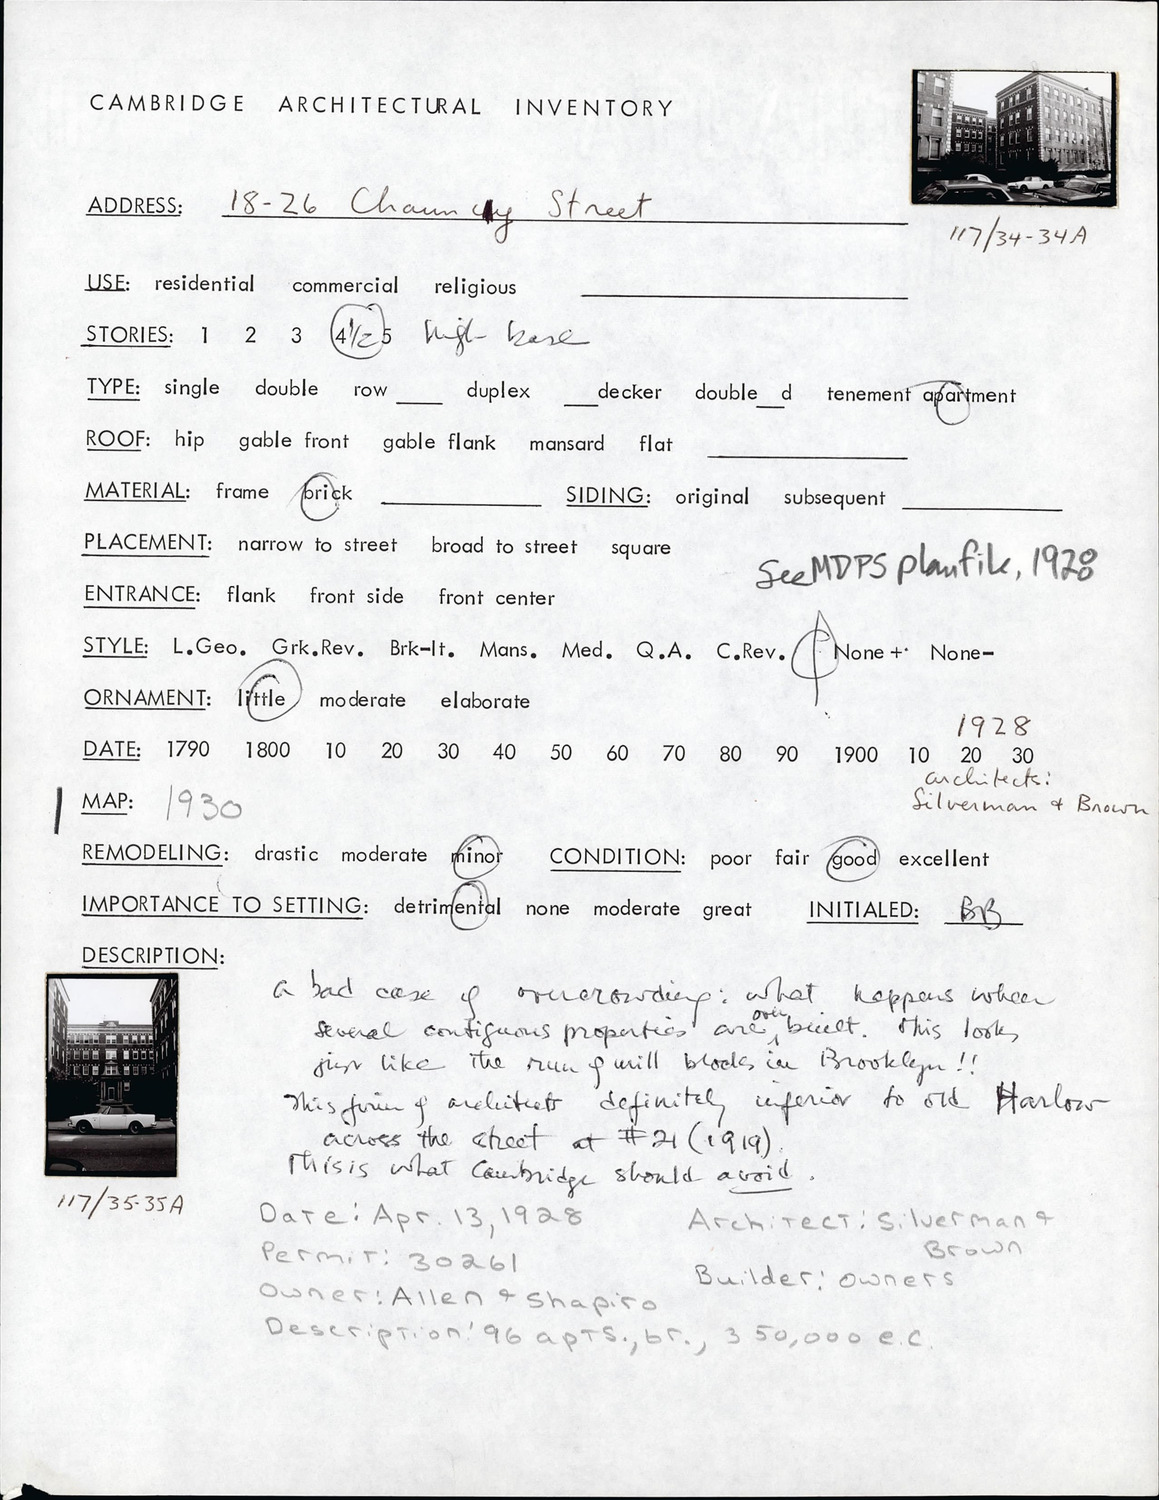 CAMBRIDGE ARCHITECTURAL INVENTORY
ADDRESS: 18-26 Chauncy Street
117/34-34A
USE: residential commercial religious
STORIES: 1 2 3 4 1/2 5 high base
TYPE: single double row ____ duplex ___decker double__d tenement apartment
ROOF: hip gable front gable flank mansard flat
MATERIAL: frame brick SIDING: original subsequent
PLACEMENT: narrow to street broad to street square
See MDPS plan file, 1928
ENTRANCE: flank front side front center
STYLE: L.Geo. Grk.Rev. Brk-It. Mans. Med. Q.A. C.Rev. None + None-
ORNAMENT: little moderate elaborate
1928
DATE: 1790 1800 10 20 30 40 50 60 70 80 90 1900 10 20 30
architects:
Silverman & Brown
MAP: 1930
REMODELING: drastic moderate minor CONDITION: poor fair good excellent
IMPORTANCE TO SETTING: detrimental none moderate great INITIALED: BB
DESCRIPTION:
a bad case of overcrowding: what happens when
several contiguous properties are over built. This looks
just like the run of mill blocks in Brooklyn!!
This form of architects definitely inferior to old Harlow
across the street at #21 (1919).
This is what Cambridge should avoid.
117/35-35A
Date: Apr. 13, 1928
Architect: Silverman &
Brown
Permit: 30261
Builder: owners
Owner: Allen & Shapiro
Description: 96 apts., br., 350,000 e.c.